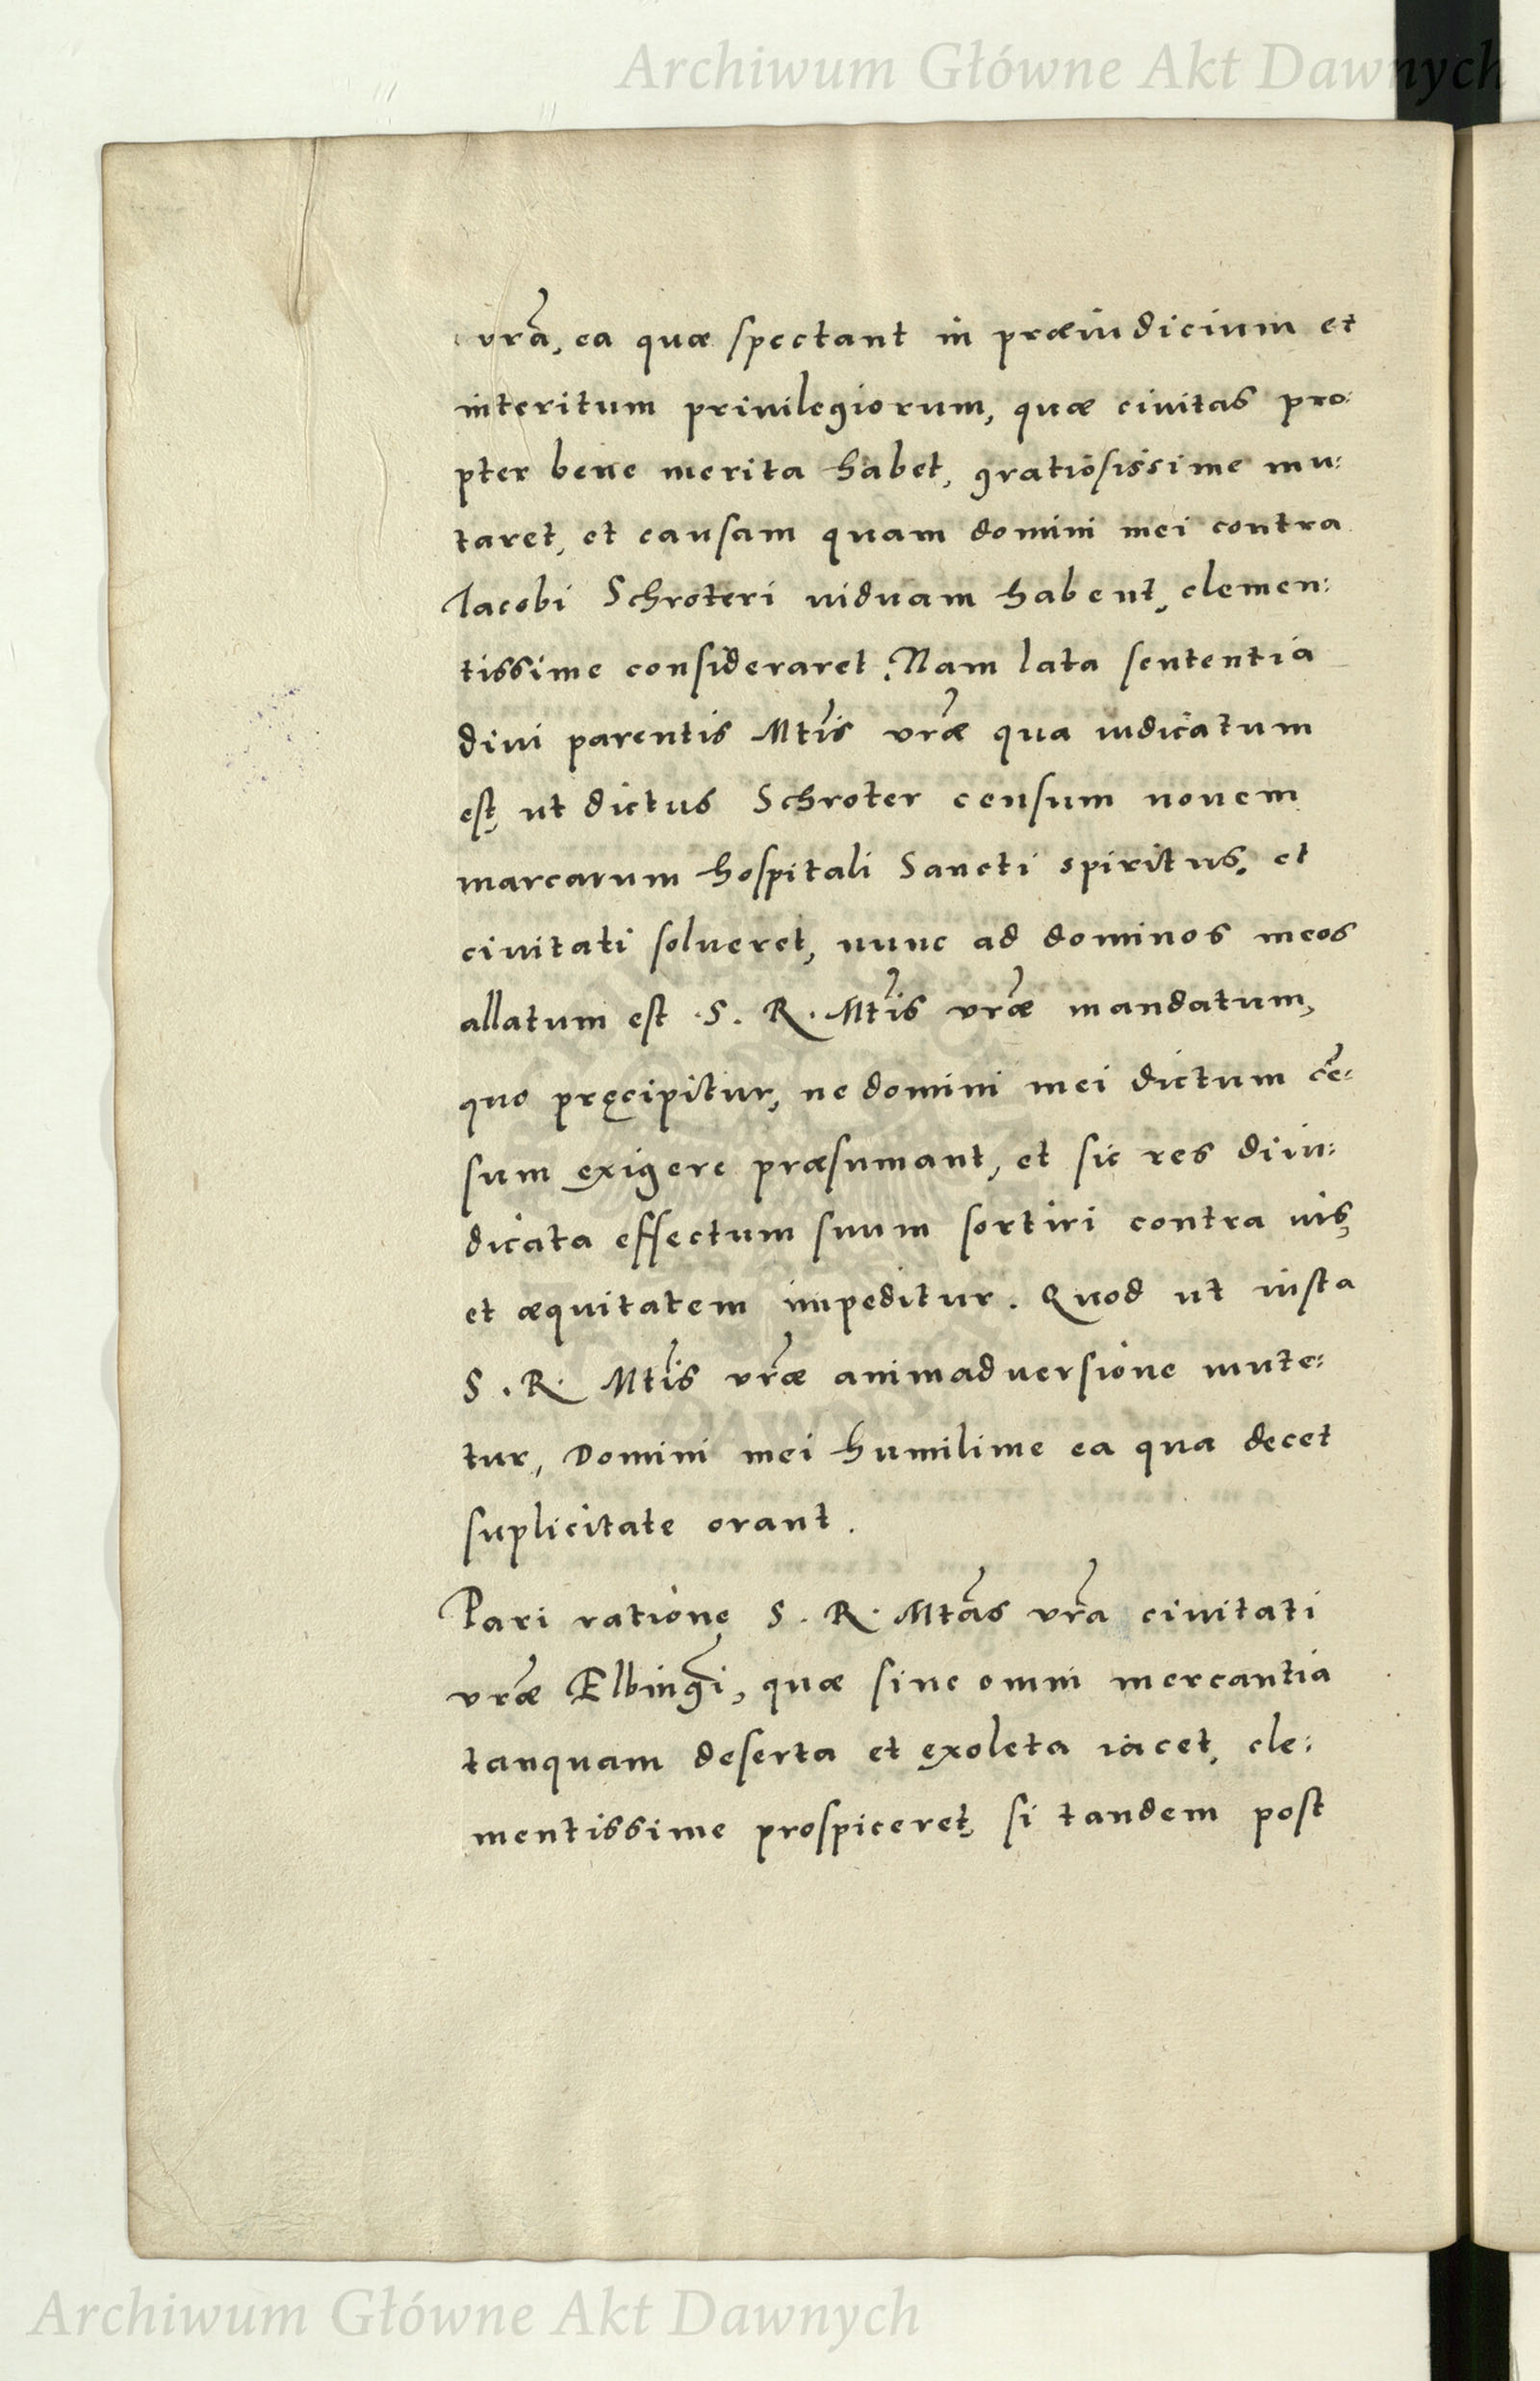 Archiwum Główne Akt Dawnych
vrã, ea quæ spectant in præiudicium et
interitum privilegiorum, quæ civitas pro:
pter bene merita habet, gratiosissime mu:
taret, et causam quam domini mei contra
Iacobi Schroteri viduam habent, clemen:
tissime consideraret. Nam lata sententia
divi parentis Mtĩs vræ̃ qua iudicatum
est, ut dictus Schroter censum novem
marcarum hospitali Sancti spiritus, et
civitati solveret, nunc ad dominos meos
allatum est .S. R. Mtĩs vræ̃ mandatum,
quo pręcipitur, ne domini mei dictum cẽ:
sum exigere præsumant, et sic res diiu:
dicata effectum suum sortiri contra ius,
et æquitatem impeditur. Quod ut iusta
S. R. Mtĩs vræ̃ animadversione mute:
tur, Domini mei humilime ea qua decet
suplicitate orant.
Pari ratione S. R. Mtãs vrã civitati
vræ̃ Elbingẽi, quæ sine omni mercantia
tanquam deserta et exoleta iacet, cle:
mentissime prospiceret, si tandem post
Archiwum Główne Akt Dawnych